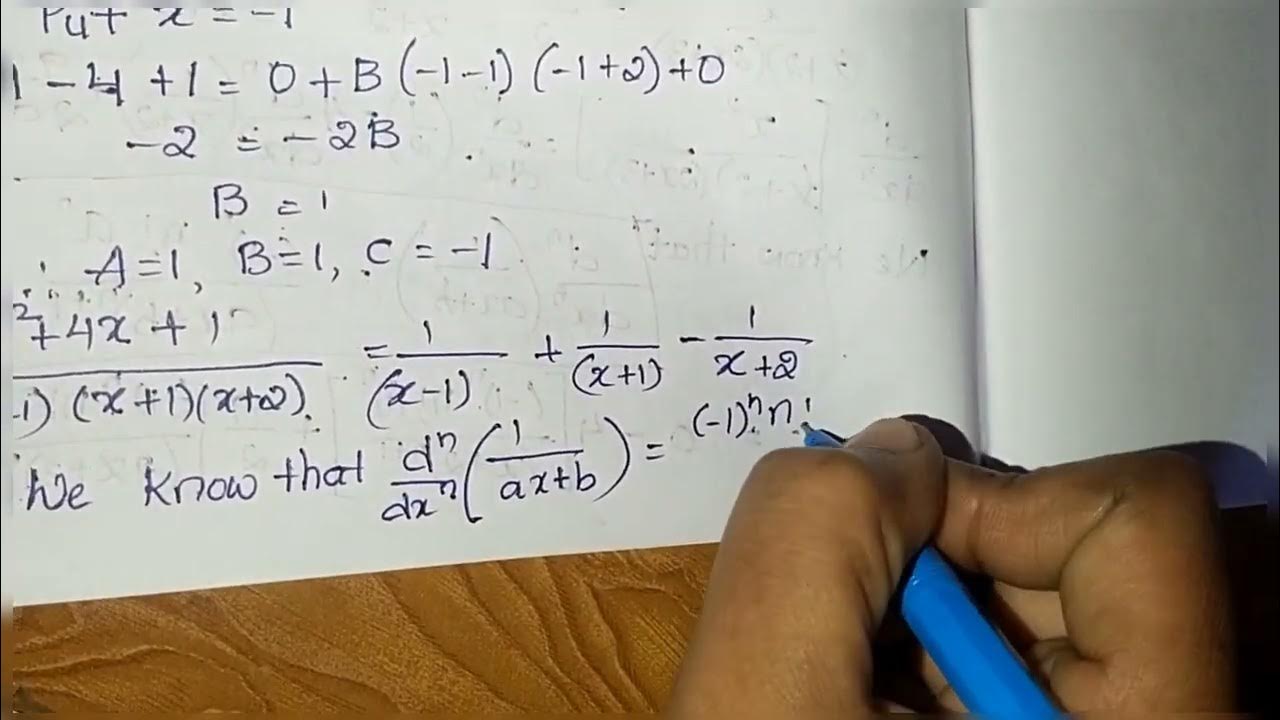 Put x = -1
1 - 4 + 1 = 0 + B (-1-1) (-1+2) + 0
-2 = -2B
B = 1
∴ A=1, B=1, C = -1
²+4x + 1 / -1) (x+1)(x+2) = 1/(x-1) + 1/(x+1) - 1/x+2
We know that dⁿ/dxⁿ (1/ax+b) = (-1)ⁿ n!